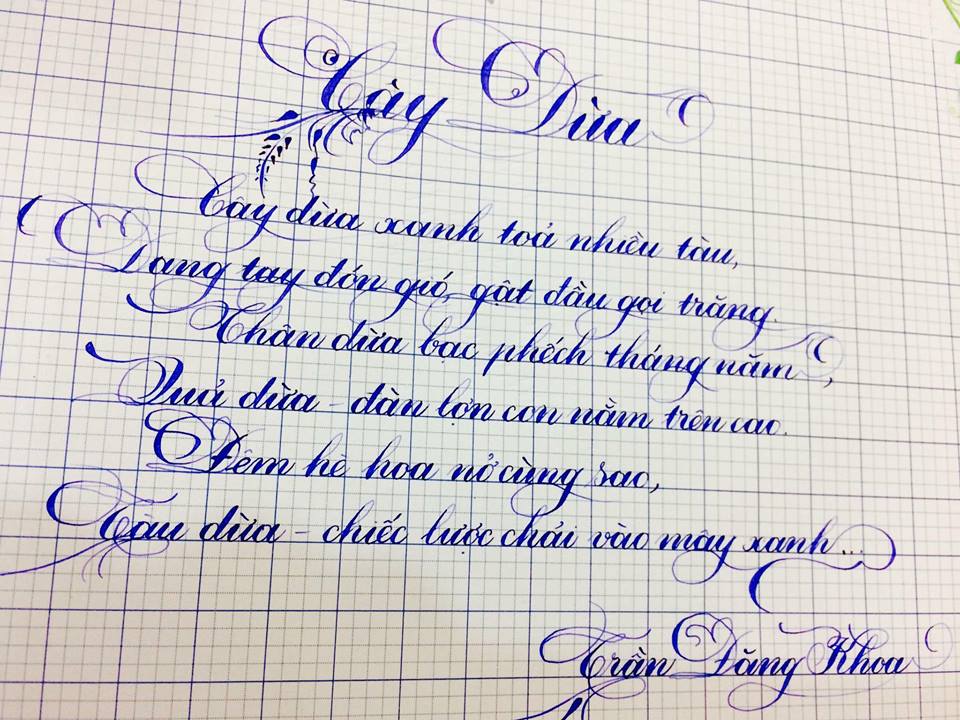 Cây Dừa
Cây dừa xanh toả nhiều tàu,
Dang tay đón gió, gật đầu gọi trăng.
Thân dừa bạc phếch tháng năm,
Quả dừa - đàn lợn con nằm trên cao.
Đêm hè hoa nở cùng sao,
Tàu dừa - chiếc lược chải vào mây xanh...
Trần Đăng Khoa